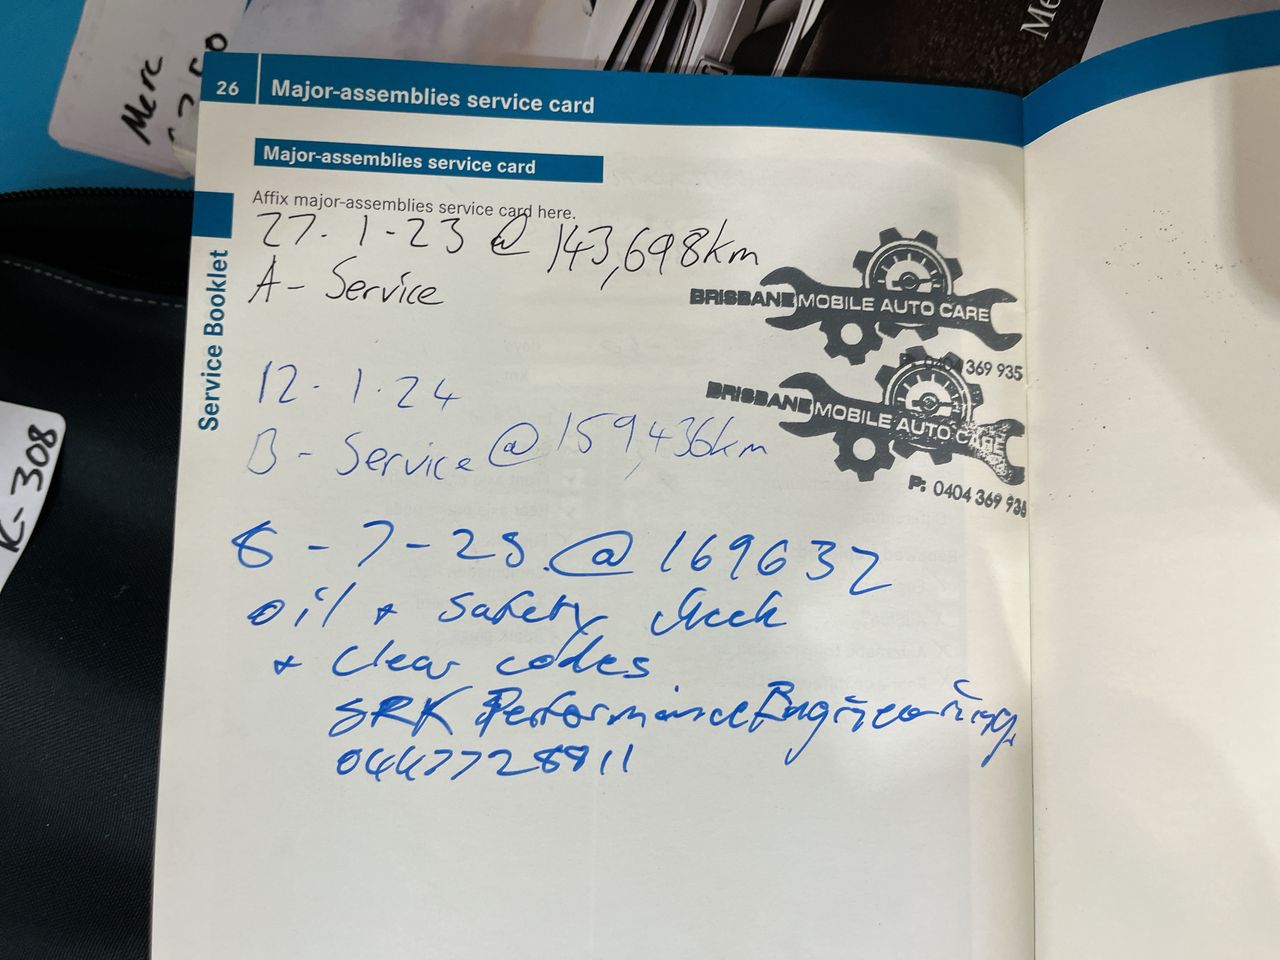 Merc
26 Major-assemblies service card
Major-assemblies service card
Affix major-assemblies service card here.
27-1-23 @ 143,698km
A- Service
BRISBANE MOBILE AUTO CARE
P: 0404 369 935
12-1-24
B- Service @ 159,436km
BRISBANE MOBILE AUTO CARE
P: 0404 369 935
8-7-25 @ 169632
oil + safety check
+ clear codes
SRK Performance Engineering
0447728811
Service Booklet
K-308
Me